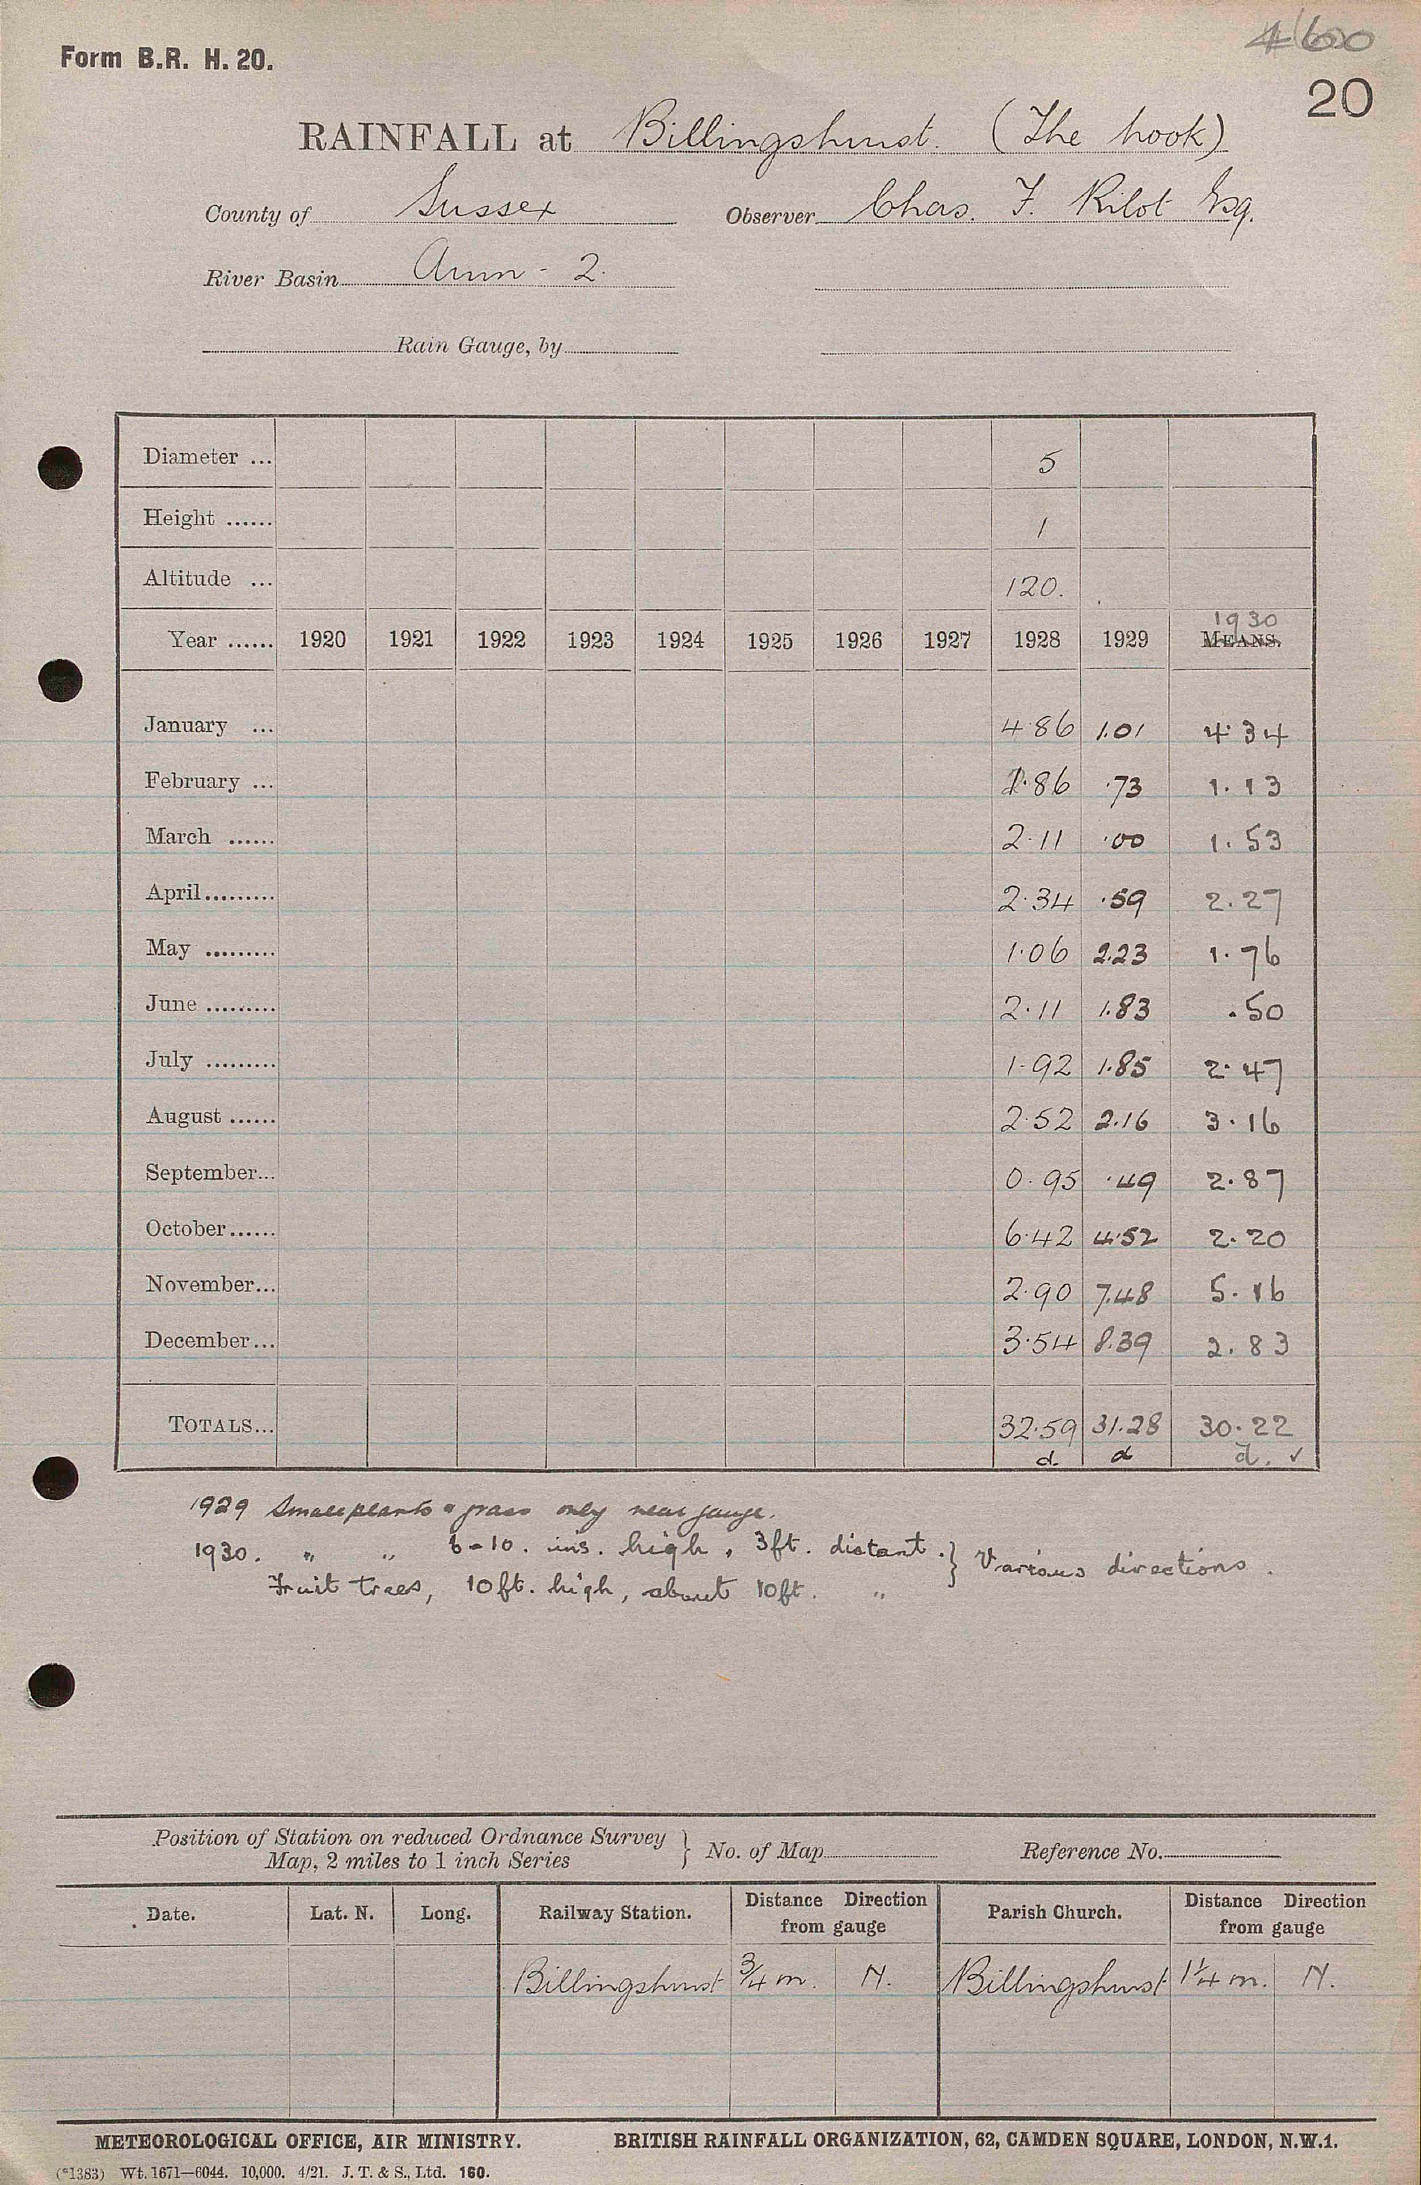 Form B.R. H. 20.
20
RAINFALL at Billingshurst. (The hook)
County of Sussex Observer Chas. F. Rilot Esq.
River Basin Arun - 2.
Rain Gauge, by
Diameter ... 5
Height ...... 1
Altitude ... 120.
1930
Year ...... 1920 1921 1922 1923 1924 1925 1926 1927 1928 1929 MEANS.
January ... 4.86 1.01 4.34
February ... 1.86 .73 1.13
March ...... 2.11 .00 1.53
April......... 2.34 .59 2.27
May ......... 1.06 2.23 1.76
June ......... 2.11 1.83 .50
July ......... 1.92 1.85 2.47
August ...... 2.52 2.16 3.16
September... 0.95 .49 2.87
October...... 6.42 4.52 2.20
November... 2.90 7.48 5.16
December... 3.54 8.39 2.83
TOTALS... 32.59 31.28 30.22
d. d d. ✓
1929 Small plants & grass only near gauge.
1930. " " 6-10. ins. high, 3ft. distant. } Various directions.
Fruit trees, 10ft. high, about 10ft. "
Position of Station on reduced Ordnance Survey } No. of Map Reference No.
Map, 2 miles to 1 inch Series
Date. Lat. N. Long. Railway Station. Distance Direction from gauge Parish Church. Distance Direction from gauge
Billingshurst 3/4 m. N. Billingshurst 1 1/4 m. N.
METEOROLOGICAL OFFICE, AIR MINISTRY. BRITISH RAINFALL ORGANIZATION, 62, CAMDEN SQUARE, LONDON, N.W.1.
(*1383) Wt. 1671—6044. 10,000. 4/21. J. T. & S., Ltd. 160.